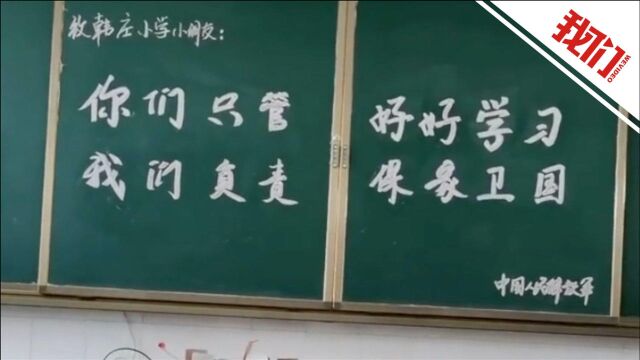 致韩庄小学小朋友：
你们只管 好好学习
我们负责 保家卫国
中国人民解放军
我们
WEVIDEO